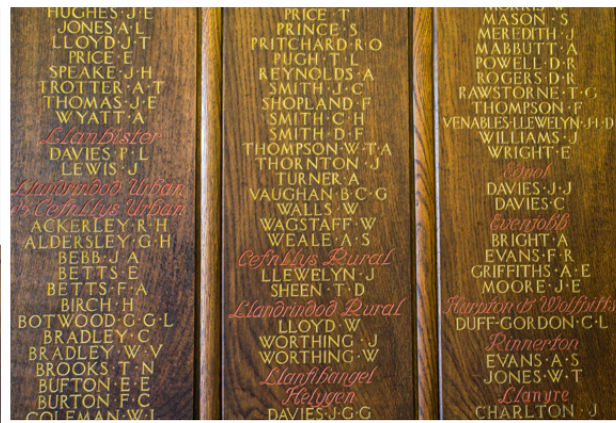 HUGHES·J·E
JONES·A·L
LLOYD·J·T
PRICE·E
SPEAKE·J·H
TROTTER·A·T
THOMAS·J·E
WYATT·A
Llanbister
DAVIES·P·L
LEWIS·J
Llandrindod Urban
Cefnllys Urban
ACKERLEY·R·H
ALDERSLEY·G·H
BEBB·J·A
BETTS·E
BETTS·F·A
BIRCH·H
BOTWOOD·G·G·L
BRADLEY·C
BRADLEY·W·V
BROOKS·T·N
BUFTON·E·E
BURTON·F·C
COLEMAN·W·L
PRICE·T
PRINCE·S
PRITCHARD·R·O
PUGH·T·L
REYNOLDS·A
SMITH·J·C
SHOPLAND·F
SMITH·C·H
SMITH·D·F
THOMPSON·W·T·A
THORNTON·J
TURNER·A
VAUGHAN·B·C·G
WALLS·W
WAGSTAFF·W
WEALE·A·S
Cefnllys Rural
LLEWELYN·J
SHEEN·T·D
Llandrindod Rural
LLOYD·W
WORTHING·J
WORTHING·W
Llanfihangel
Helygen
DAVIES·J·G·G
MORRIS·W
MASON·S
MEREDITH·J
MABBUTT·A
POWELL·D·R
ROGERS·D·R
RAWSTORNE·T·G
THOMPSON·F
VENABLES·LLEWELYN·J·L·D
WILLIAMS·J
WRIGHT·E
Ednol
DAVIES·J·J
DAVIES·C
Evenjobb
BRIGHT·A
EVANS·F·R
GRIFFITHS·A·E
MOORE·J·E
Harpton & Wolfpits
DUFF-GORDON·C·L
Kinnerton
EVANS·A·S
JONES·W·T
Llanyre
CHARLTON·J